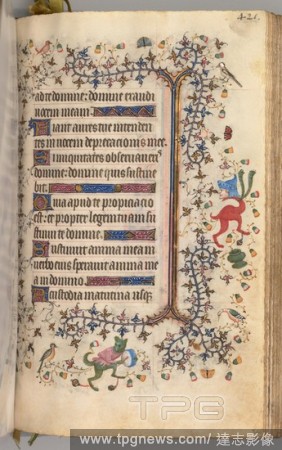 421.
ad te domine: domine exaudi
uocem meam.
Fiant aures tue intenden
tes in uocem deprecacionis mee.
Si iniquitates obseruaueris
domine: domine quis sustine
bit.
Quia apud te propiciacio
est: et propter legem tuam sus
tinui te domine.
Sustinuit anima mea in
uerbo eius sperauit anima me
a in domino.
A custodia matutina usqz
TPG
www.tpgnews.com/達志影像